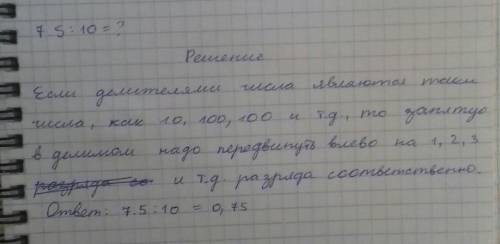 7.5:10=?
Решение
Если делителями числа являются такие
числа, как 10, 100, 100 и т.д., то запятую
в делимом надо передвинуть влево на 1, 2, 3
разряда со и т.д. разряда соответственно.
Ответ: 7.5:10 = 0,75